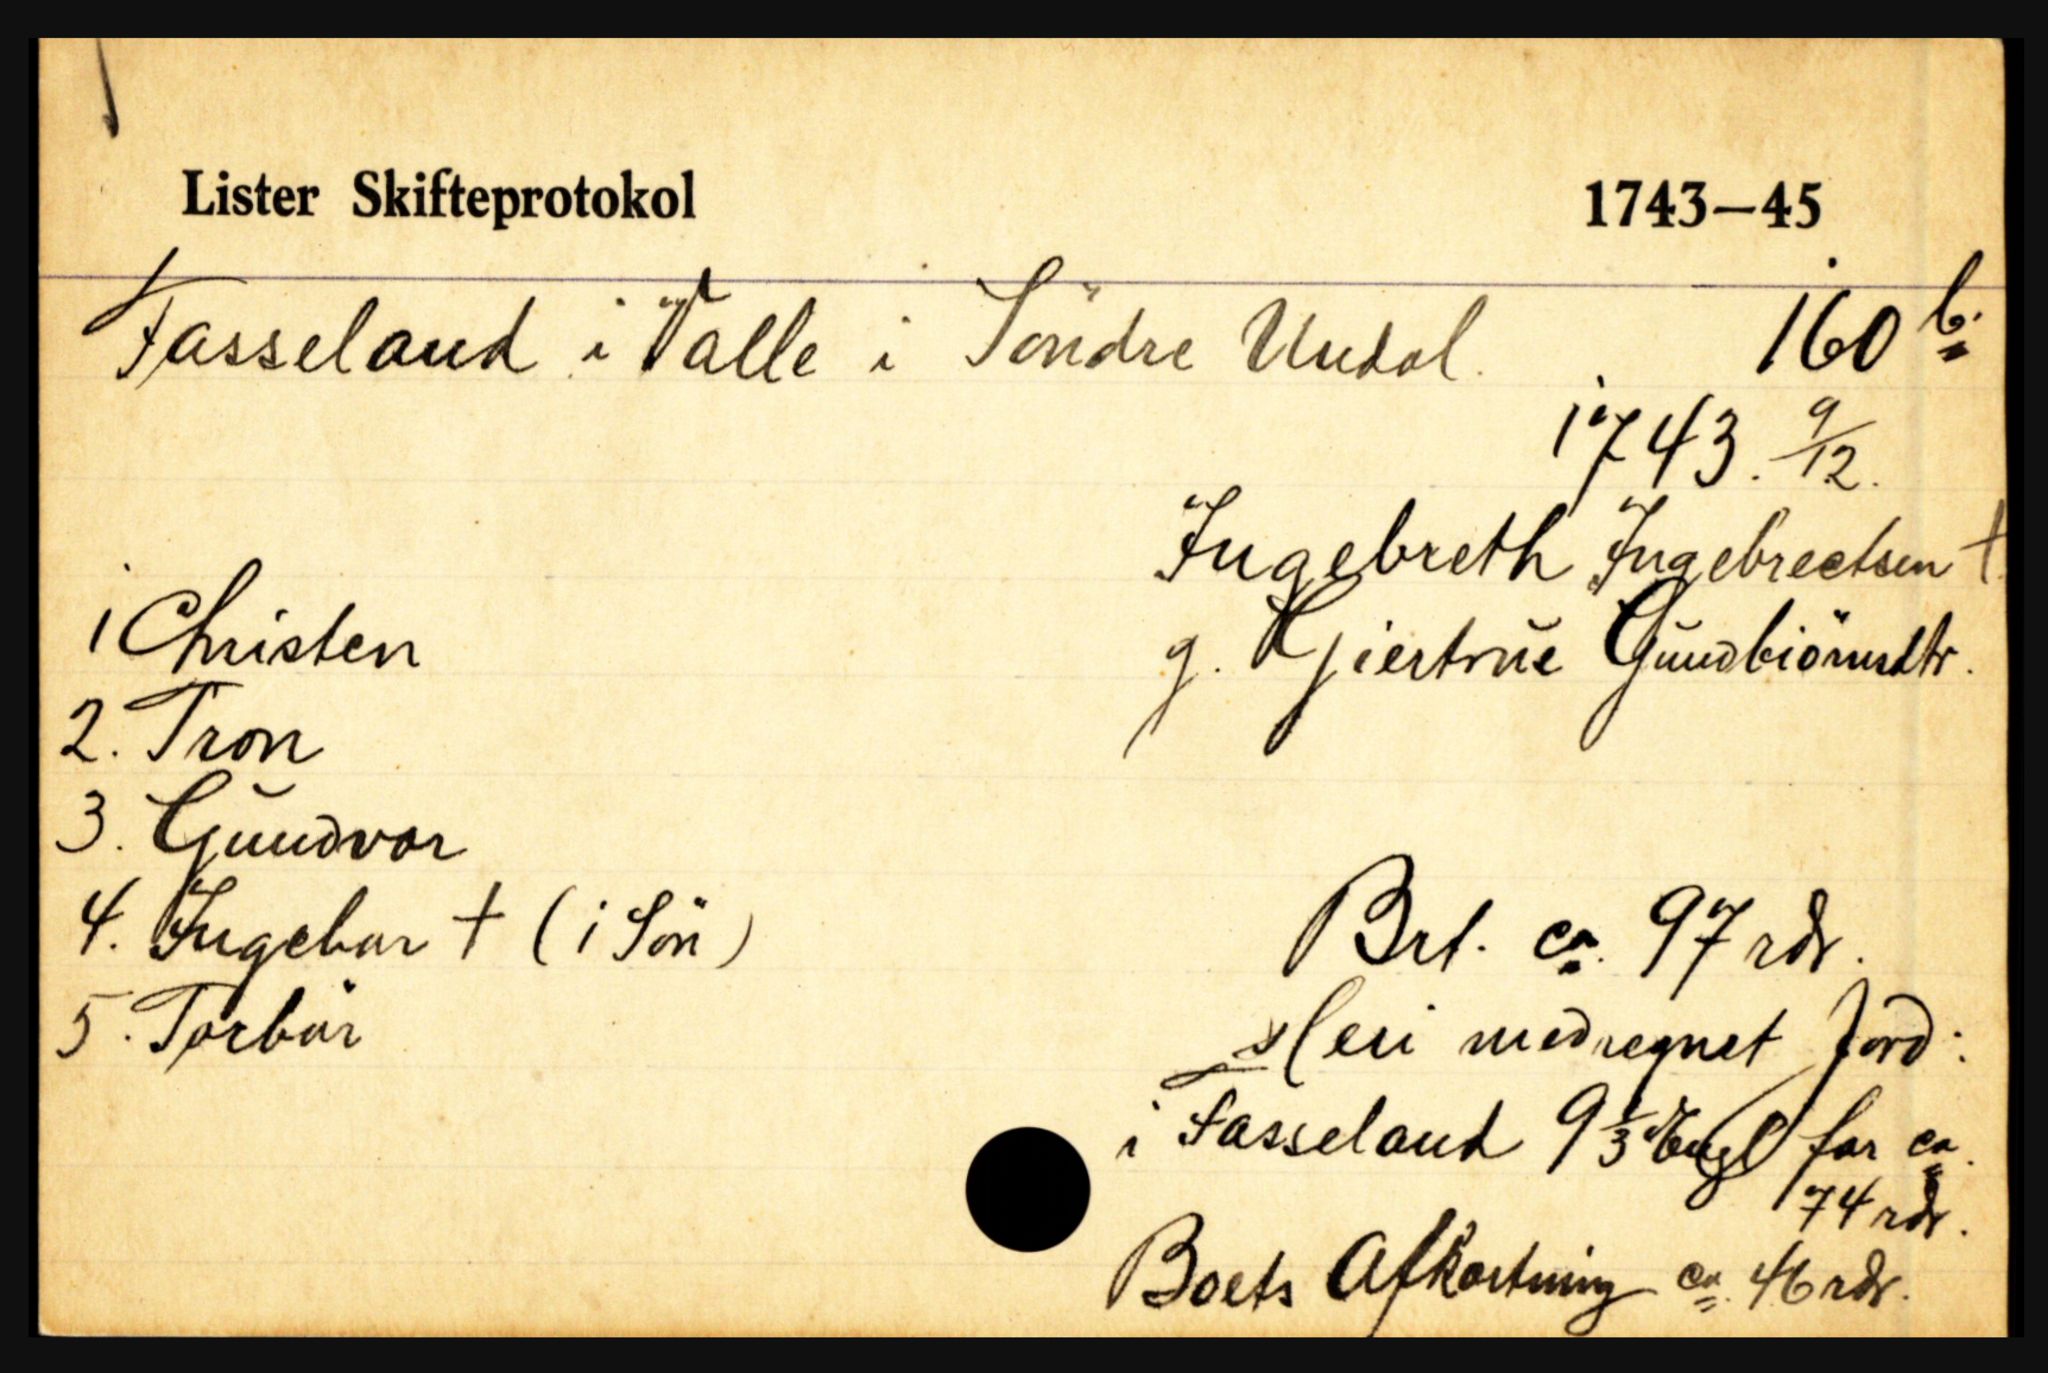 Lister Skifteprotokol 1743–45
Fasseland i Valle i Söndre Undal. 160 b.
1743. 9/12.
Ingebreth Ingebrectsen †
g. Gjertrue Gundbiörnsdtr.
1 Christen
2. Tron
3. Gundvor
4. Ingebor † (1 Sön)
5. Torbör
Brt. ca. 97 rdr.
Heri medregnet Jord:
i Fasseland 9 1/3 Engl for ca.
74 rdr.
Boets Afkortning ca. 46 rdr.